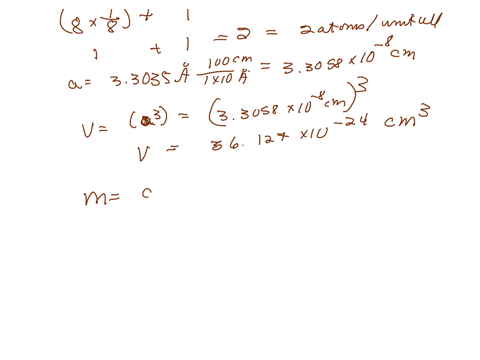 (8 × 1/8) + 1
1 + 1 = 2 = 2 atoms/unit cell
a = 3.3035 Å 100 cm / 1×10 Å = 3.3058 × 10^-8 cm
V = (a^3) = (3.3058 × 10^-8 cm)^3
V = 36.127 × 10^-24 cm^3
m =